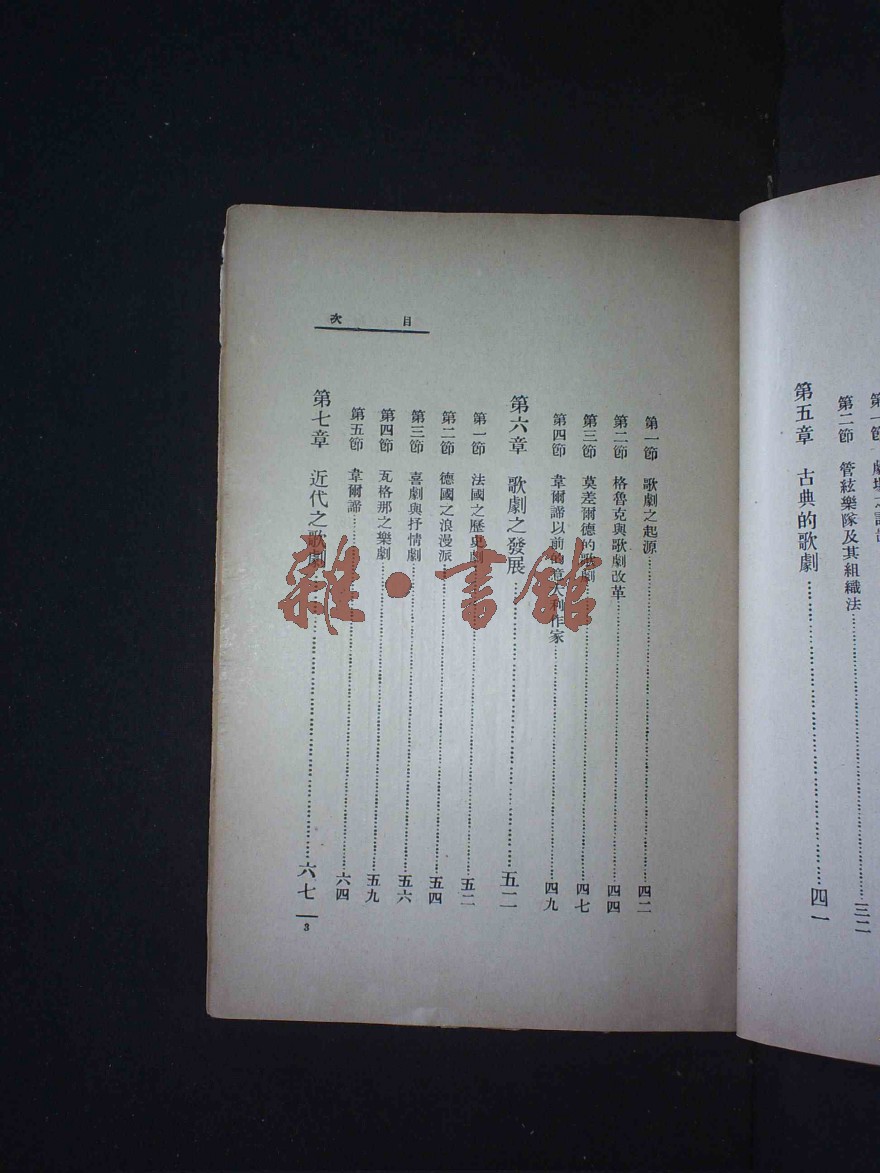 第二節 管絃樂隊及其組織法……三二
第五章 古典的歌劇……四一
目次
第一節 歌劇之起源……四二
第二節 格魯克與歌劇改革……四四
第三節 莫差爾德的歌劇……四七
第四節 韋爾諦以前的意大利作家……四九
第六章 歌劇之發展……五二
第一節 法國之歷史劇……五二
第二節 德國之浪漫派……五四
第三節 喜劇與抒情劇……五六
第四節 瓦格那之樂劇……五九
第五節 韋爾諦……六四
第七章 近代之歌劇……六七
3
雜·書館